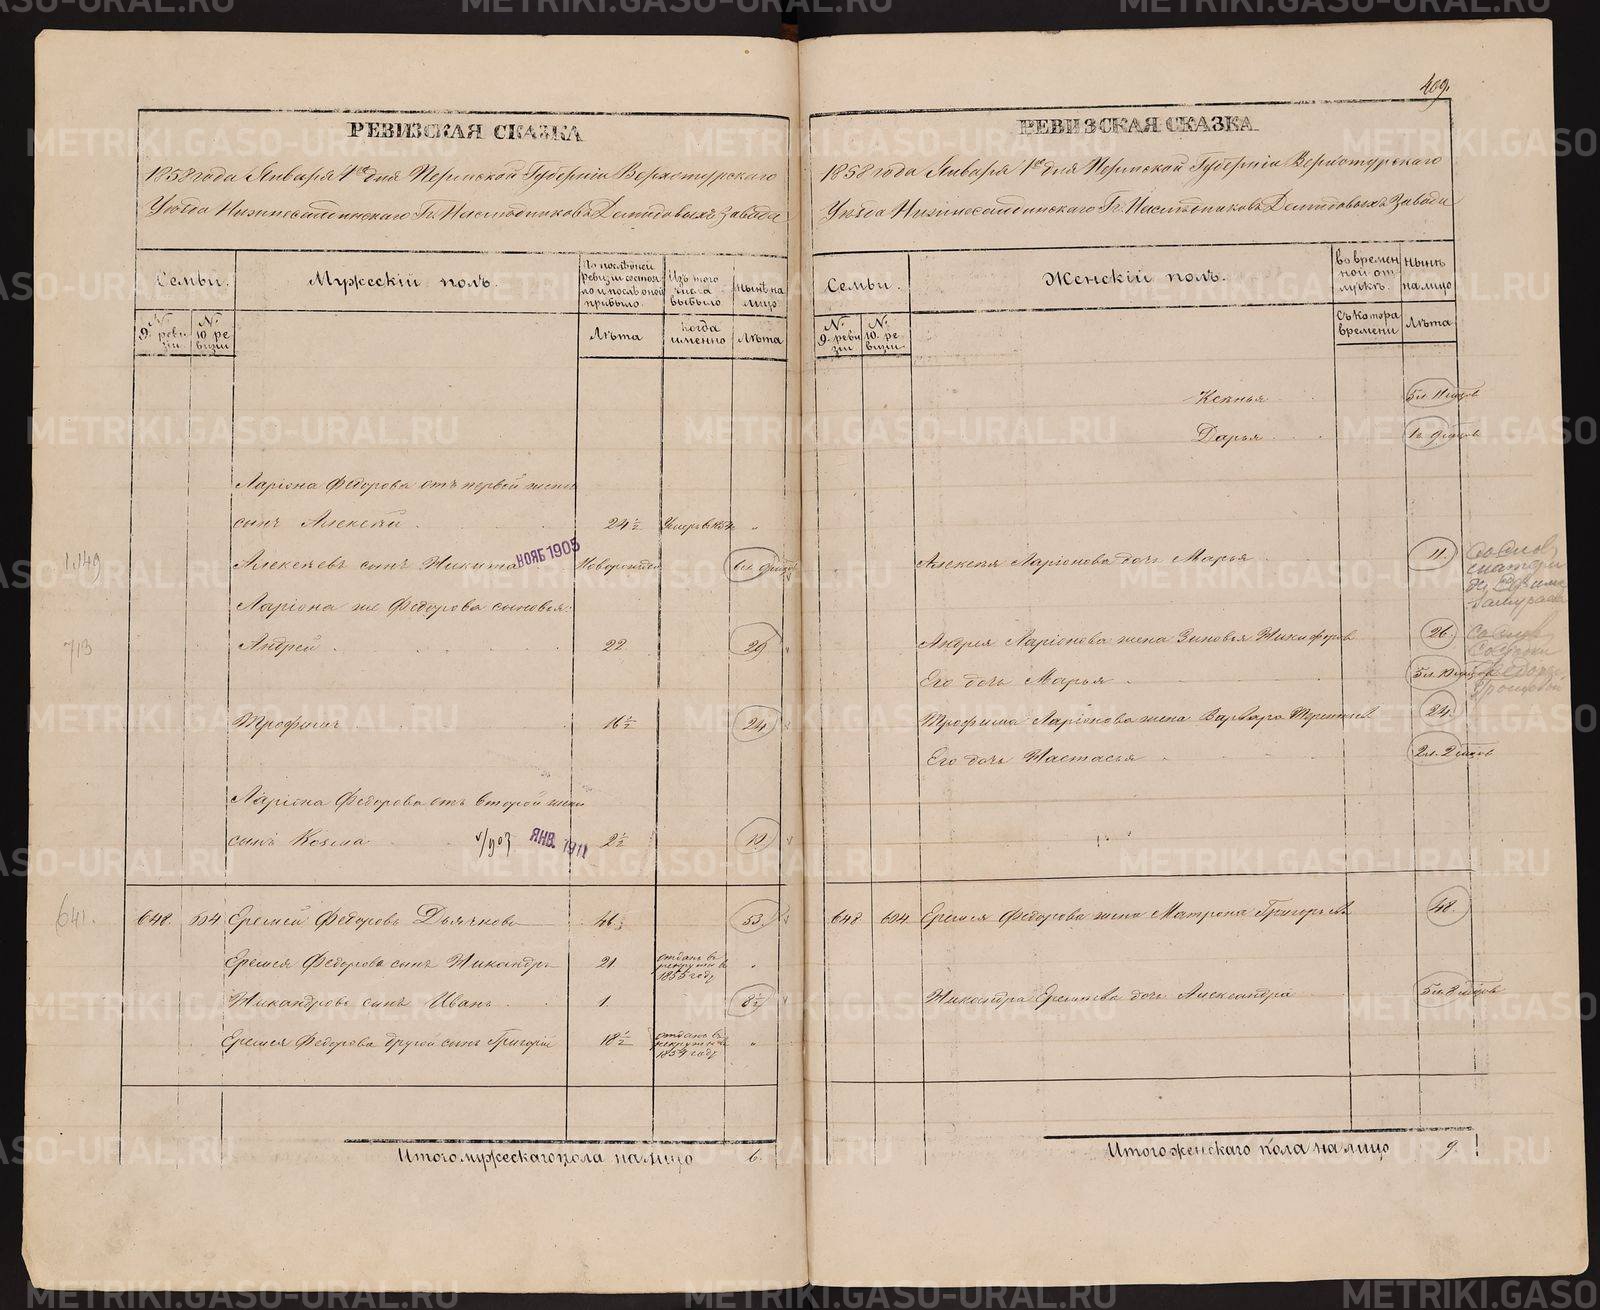 409.
РЕВИЗСКАЯ СКАЗКА
1858 года Января 1го дня Пермской Губерніи Верхотурскаго
Уѣзда Нижнесалдинскаго Гг. Наслѣдниковъ Демидовыхъ Завода
Семьи.
Мужескій полъ.
По послѣдней ревизіи состояло и послѣ оной прибыло.
Изъ того числа выбыло
Нынѣ на лицо
№ 9. ревизіи
№ 10 ревизіи
Лѣта
Когда именно
Лѣта
Ларіона Федорова отъ первой жены
сынъ Алексѣй 24½ Умеръ въ
1149 Алексѣевъ сынъ Никита НОЯБ 1905 Новорожден 6 л. мѣсцов
Ларіона же Федорова сыновья:
713 Андрей 22 29
Трофимъ 16½ 24
Ларіона Федорова отъ второй жены
сынъ Козма ЯНВ. 1911 2½ 10
641. 648. 694 Еремей Федоровъ Дьячково 46 53.
Еремея Федорова сынъ Никандръ 21. отданъ въ рекруты въ 1855 году
Никандровъ сынъ Иванъ 1. 8½
Еремея Федорова другой сынъ Григорій 18½ отданъ въ рекруты въ 1854 году
Итого мужескаго пола на лицо 6.
РЕВИЗСКАЯ СКАЗКА
1858 года Января 1го дня Пермской Губерніи Верхотурскаго
Уѣзда Нижнесалдинскаго Гг. Наслѣдниковъ Демидовыхъ Завода
Семьи.
Женскій полъ.
во временной отлучкѣ.
Нынѣ на лицо
№ 9. ревизіи
№ 10. ревизіи
Съ котора времени
Лѣта
Ксенья 5 л. 11 мѣсцов
Дарья 1 г. 9 мѣсцов
Алексѣя Ларіонова дочь Марья 11.
Андрея Ларіонова жена Зиновья Никифоров 26.
Его дочь Марья 5 л. 10 мѣсцов
Трофима Ларіонова жена Варвара Терентьев 24.
Его дочь Настасья 2 л. 2 мѣсцов
648 694. Еремея Федорова жена Матрона Григорьев 48.
Никандра Еремѣева дочь Александра 5 л. 8 мѣсцов
Итого женскаго пола на лицо 9.
METRIKI.GASO-URAL.RU